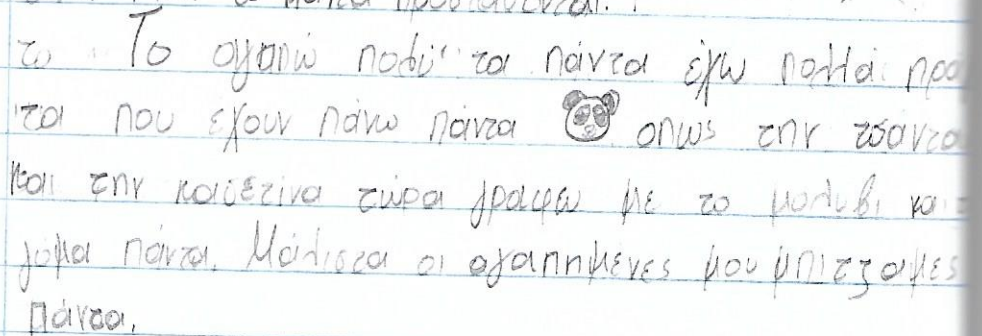 το Το αγαπώ πολύ τα πάντα έχω πολλά πρα
τα που έχουν πάνω πάντα οπως την τσάντα
και την κασετίνα τώρα γράφω με το μολυβι και
γόμα πάντα. Μάλιστα οι αγαπημένες μου μπιτζαμες
πάντα.